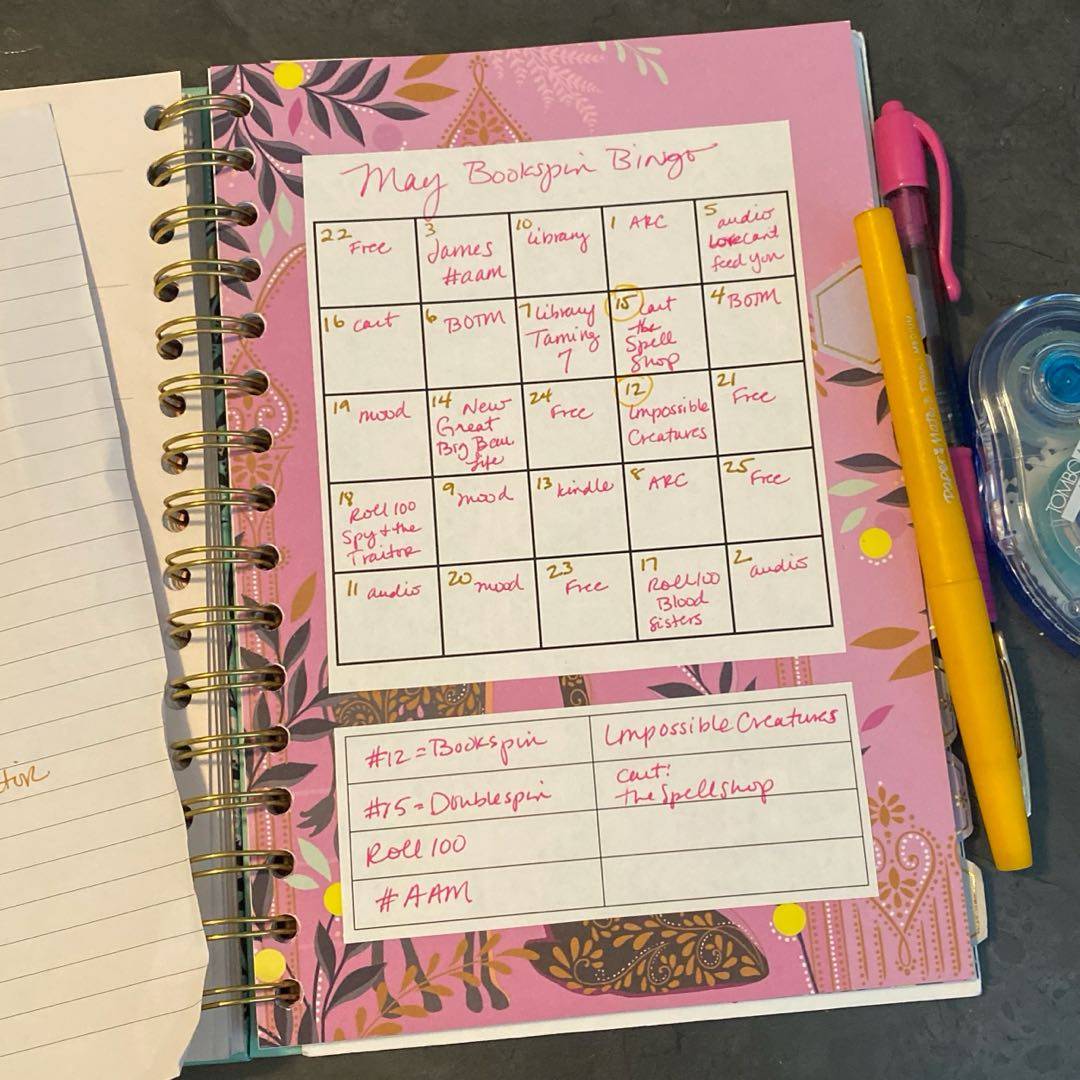 May Bookspin Bingo
22 Free
3 James #aam
10 Library
1 ARC
5 audio Love Cant feed you
16 cart
6 BOTM
7 Library Taming 7
15 Cart the Spell Shop
4 BOTM
19 mood
14 New Great Big Beau life
24 Free
12 Impossible Creatures
21 Free
18 Roll 100 Spy + the Traitor
9 mood
13 kindle
8 ARC
25 Free
11 audio
20 mood
23 Free
17 Roll 100 Blood Sisters
2 audio
#12 = Bookspin
Impossible Creatures
#15 = Doublespin
Cart:
the Spellshop
Roll 100
#AAM
Paper Mate
TOMBO